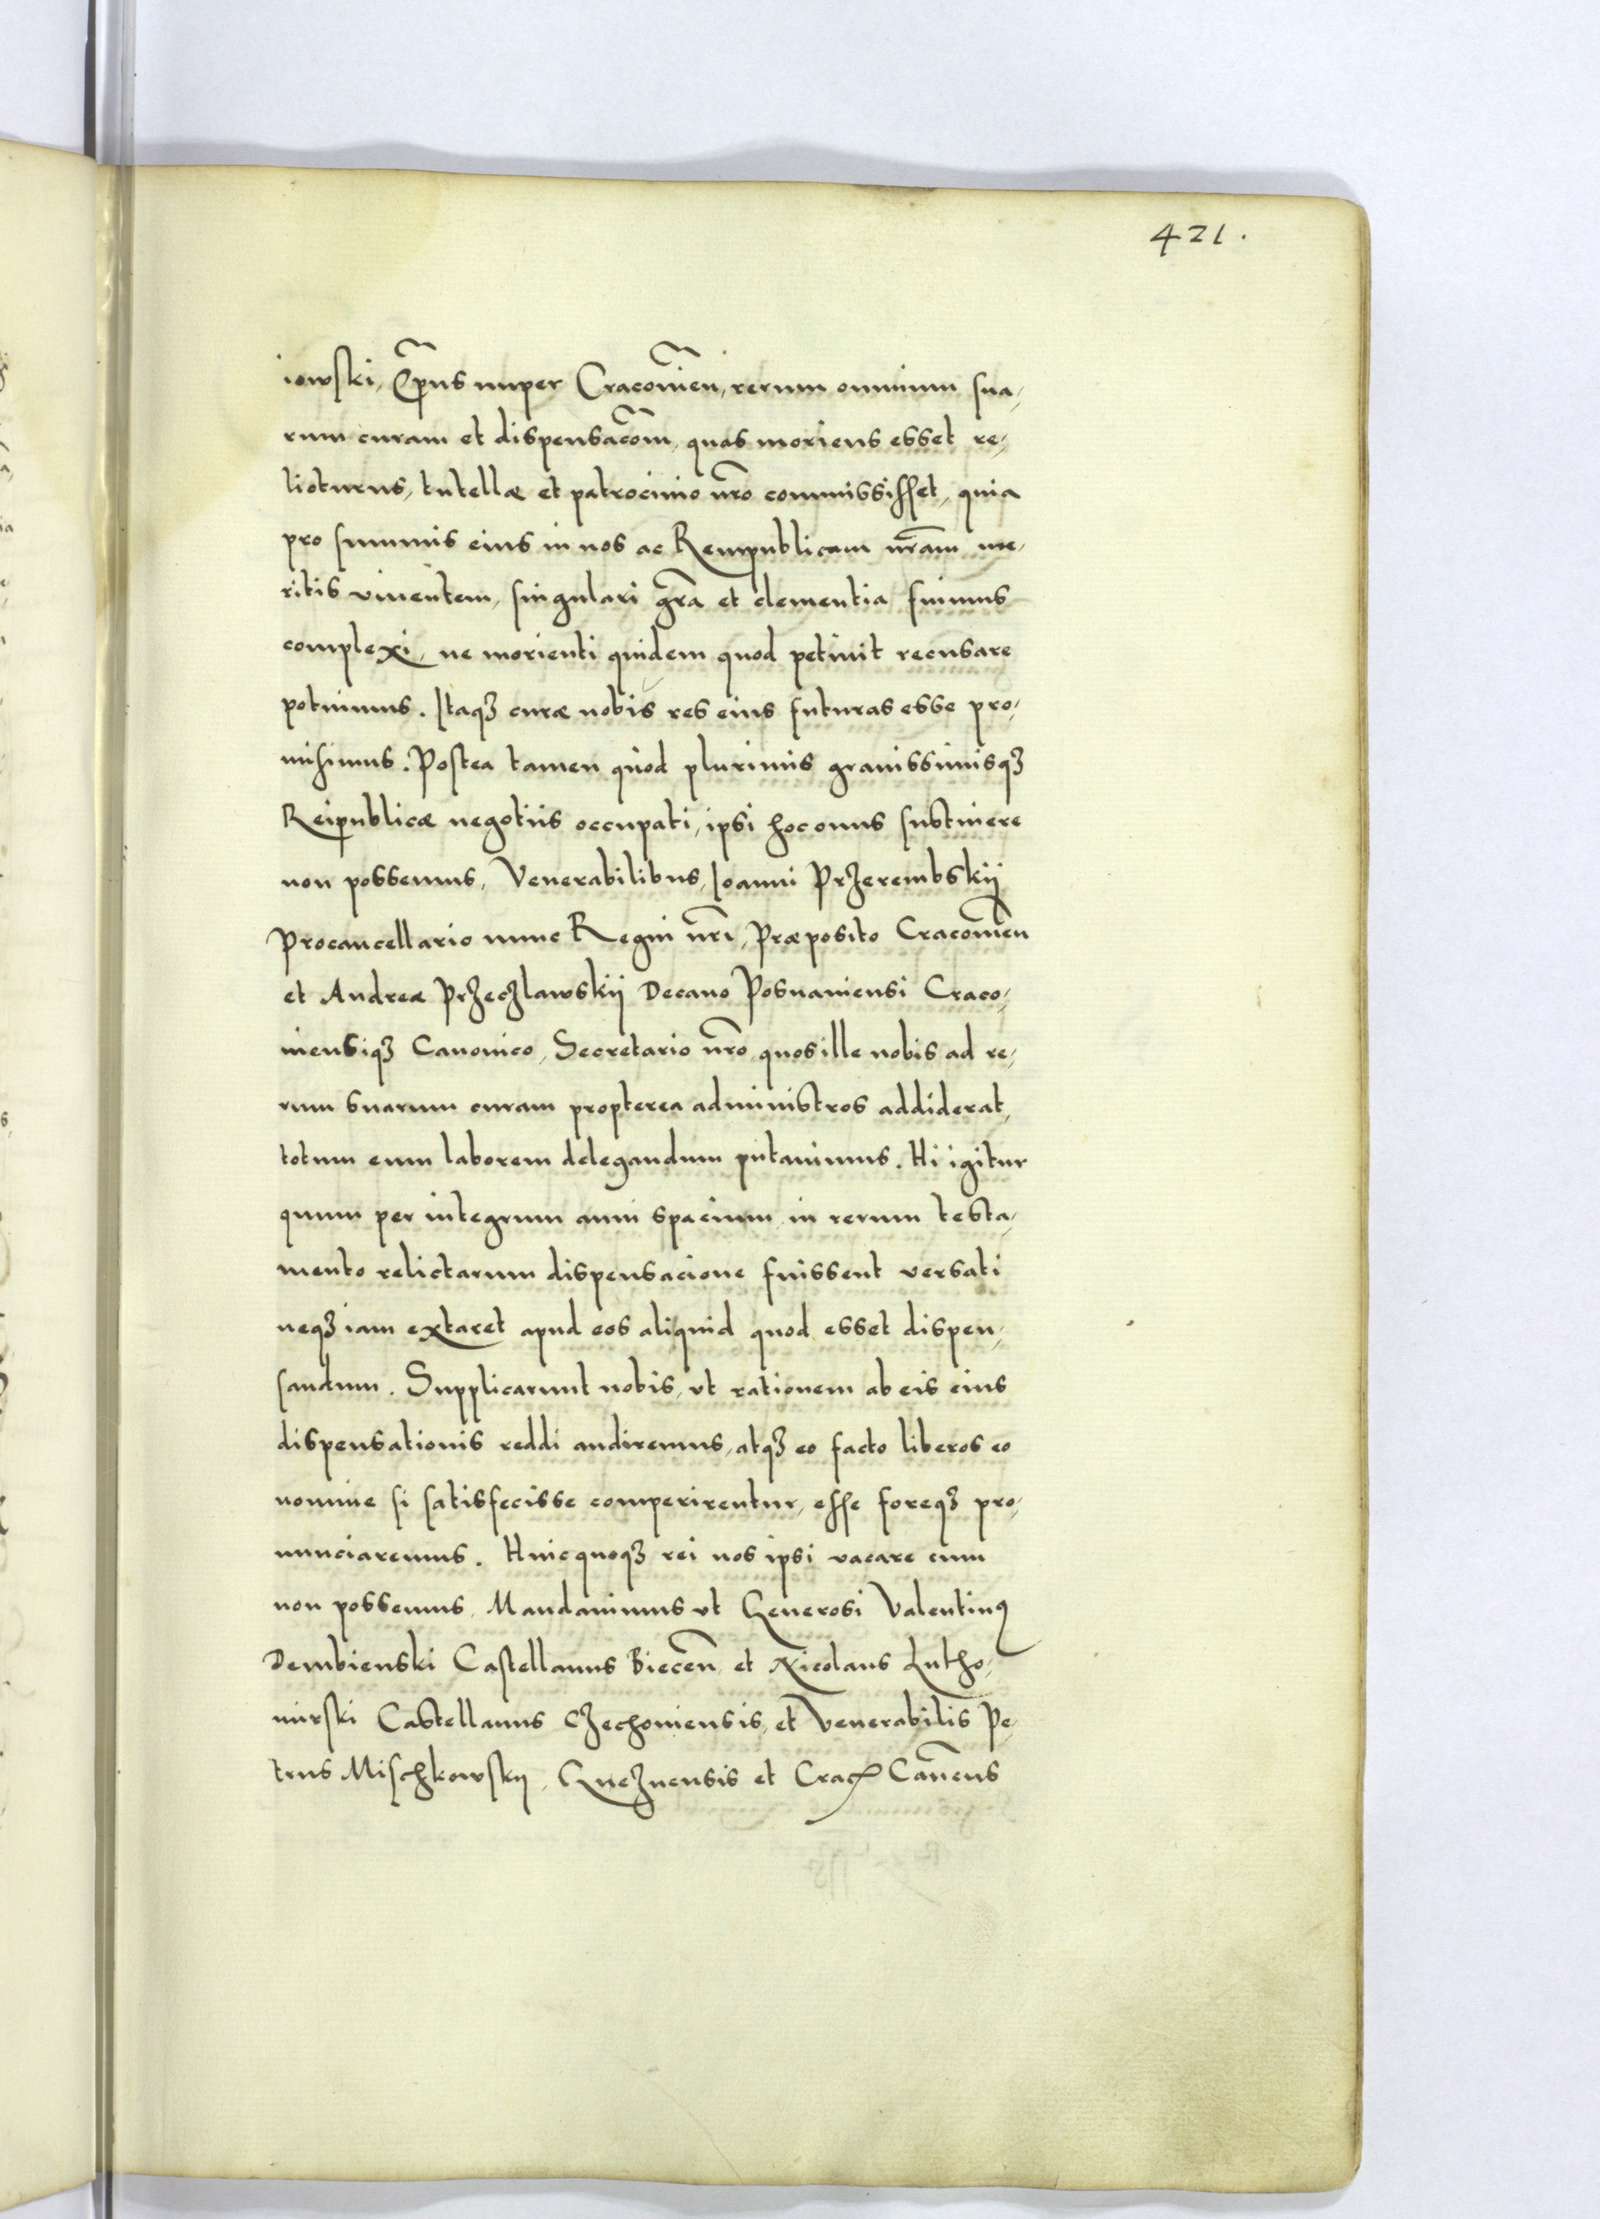 421.
iowski, Ep̃us nuper Cracovieñ, rerum omnium sua,
rum curam et dispensac̃om, quas moriens esset re,
licturus, tutellæ et patrocinio nr̃o commississet, quia
pro summis eius in nos ac Rempublicam nr̃am me,
ritis viventem, singulari gr̃a et clementia fuimus
complexi, ne morienti quidem quod petivit recusare
potuimus. Itaqʒ curæ nobis res eius futuras esse pro,
misimus. Postea tamen quod plurimis gravissimisqʒ
Reipublicæ negotiis occupati, ipsi hoc onus sustinere
non possemus, Venerabilibus, Ioanni Przerembskij
Procancellario nunc Regni nr̃i, Præposito Cracovieñ
et Andreæ Przeczlawskij Decano Posnaniensi Craco,
viensiqʒ Canonico, Secretario nr̃o, quos ille nobis ad re,
rum suarum curam propterea administros addiderat,
totum eum laborem delegandum putavimus. Hi igitur
quum per integrum anni spacium in rerum testa,
mento relictarum dispensacione fuissent versati
neqʒ iam extaret apud eos aliquid quod esset dispen,
sandum. Supplicarunt nobis, ut rationem ab eis eius
dispensationis reddi audiremus, atqʒ eo facto liberos eo
nomine si satisfecisse comperirentur, esse foreqʒ pro,
nunciaremus. Huic quoqʒ rei nos ipsi vacare cum
non possemus, Mandavimus ut Generosi Valentinꝰ
Dembienski Castellanus Bieceñ et Nicolaus Lutho,
mirski Castellanus Czechoviensis, et Venerabilis Pe,
trus Mischkowskij, Gneznensis et Crac̃ Cañens